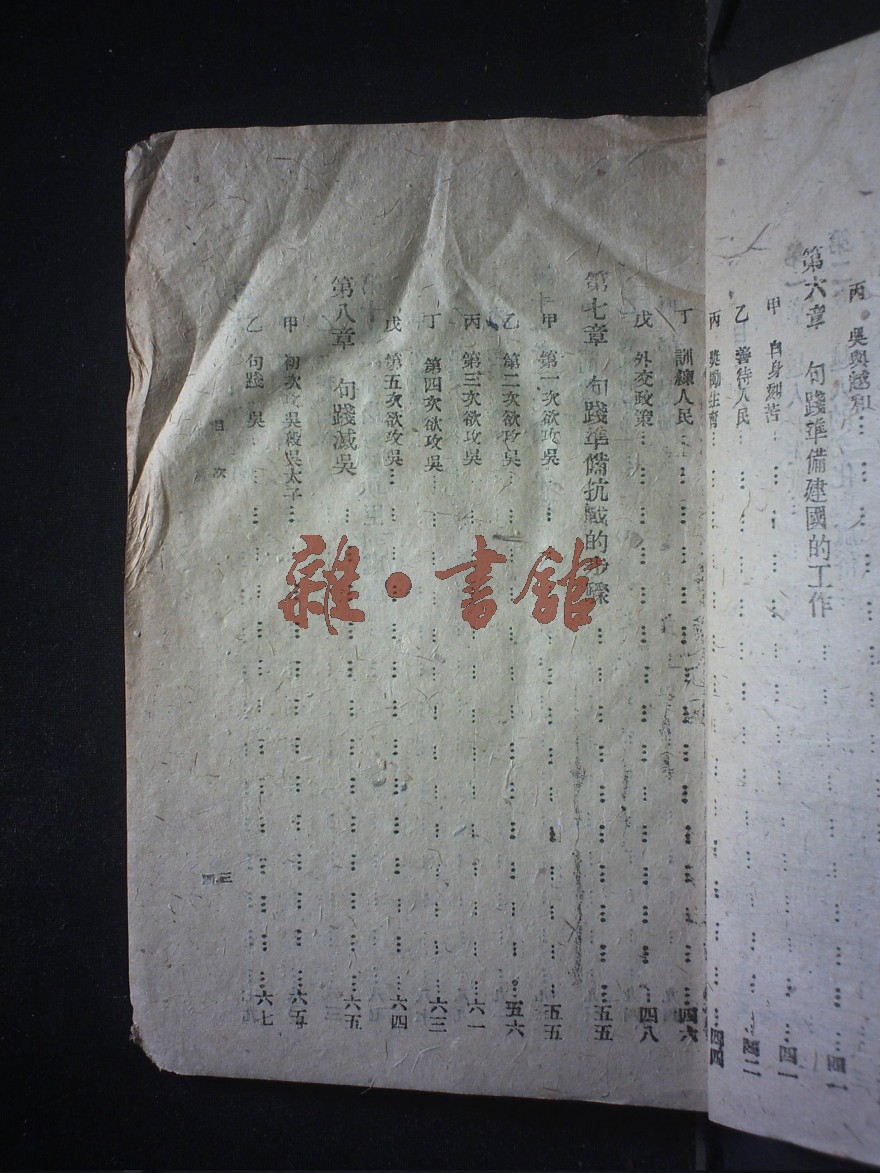 丙 吳與越和
第六章 句踐準備建國的工作 四一
甲 自身刻苦 四一
乙 善待人民 四二
丙 獎勵生育 四四
丁 訓練人民 四六
戊 外交政策 四八
第七章 句踐準備抗戰的步驟 五五
甲 第一次欲攻吳 五五
乙 第二次欲攻吳 五六
丙 第三次欲攻吳 六一
丁 第四次欲攻吳 六三
戊 第五次欲攻吳 六四
第八章 句踐滅吳 六五
甲 初次攻吳殺吳太子 六五
乙 句踐 吳 六七
目次
三
雜·書館